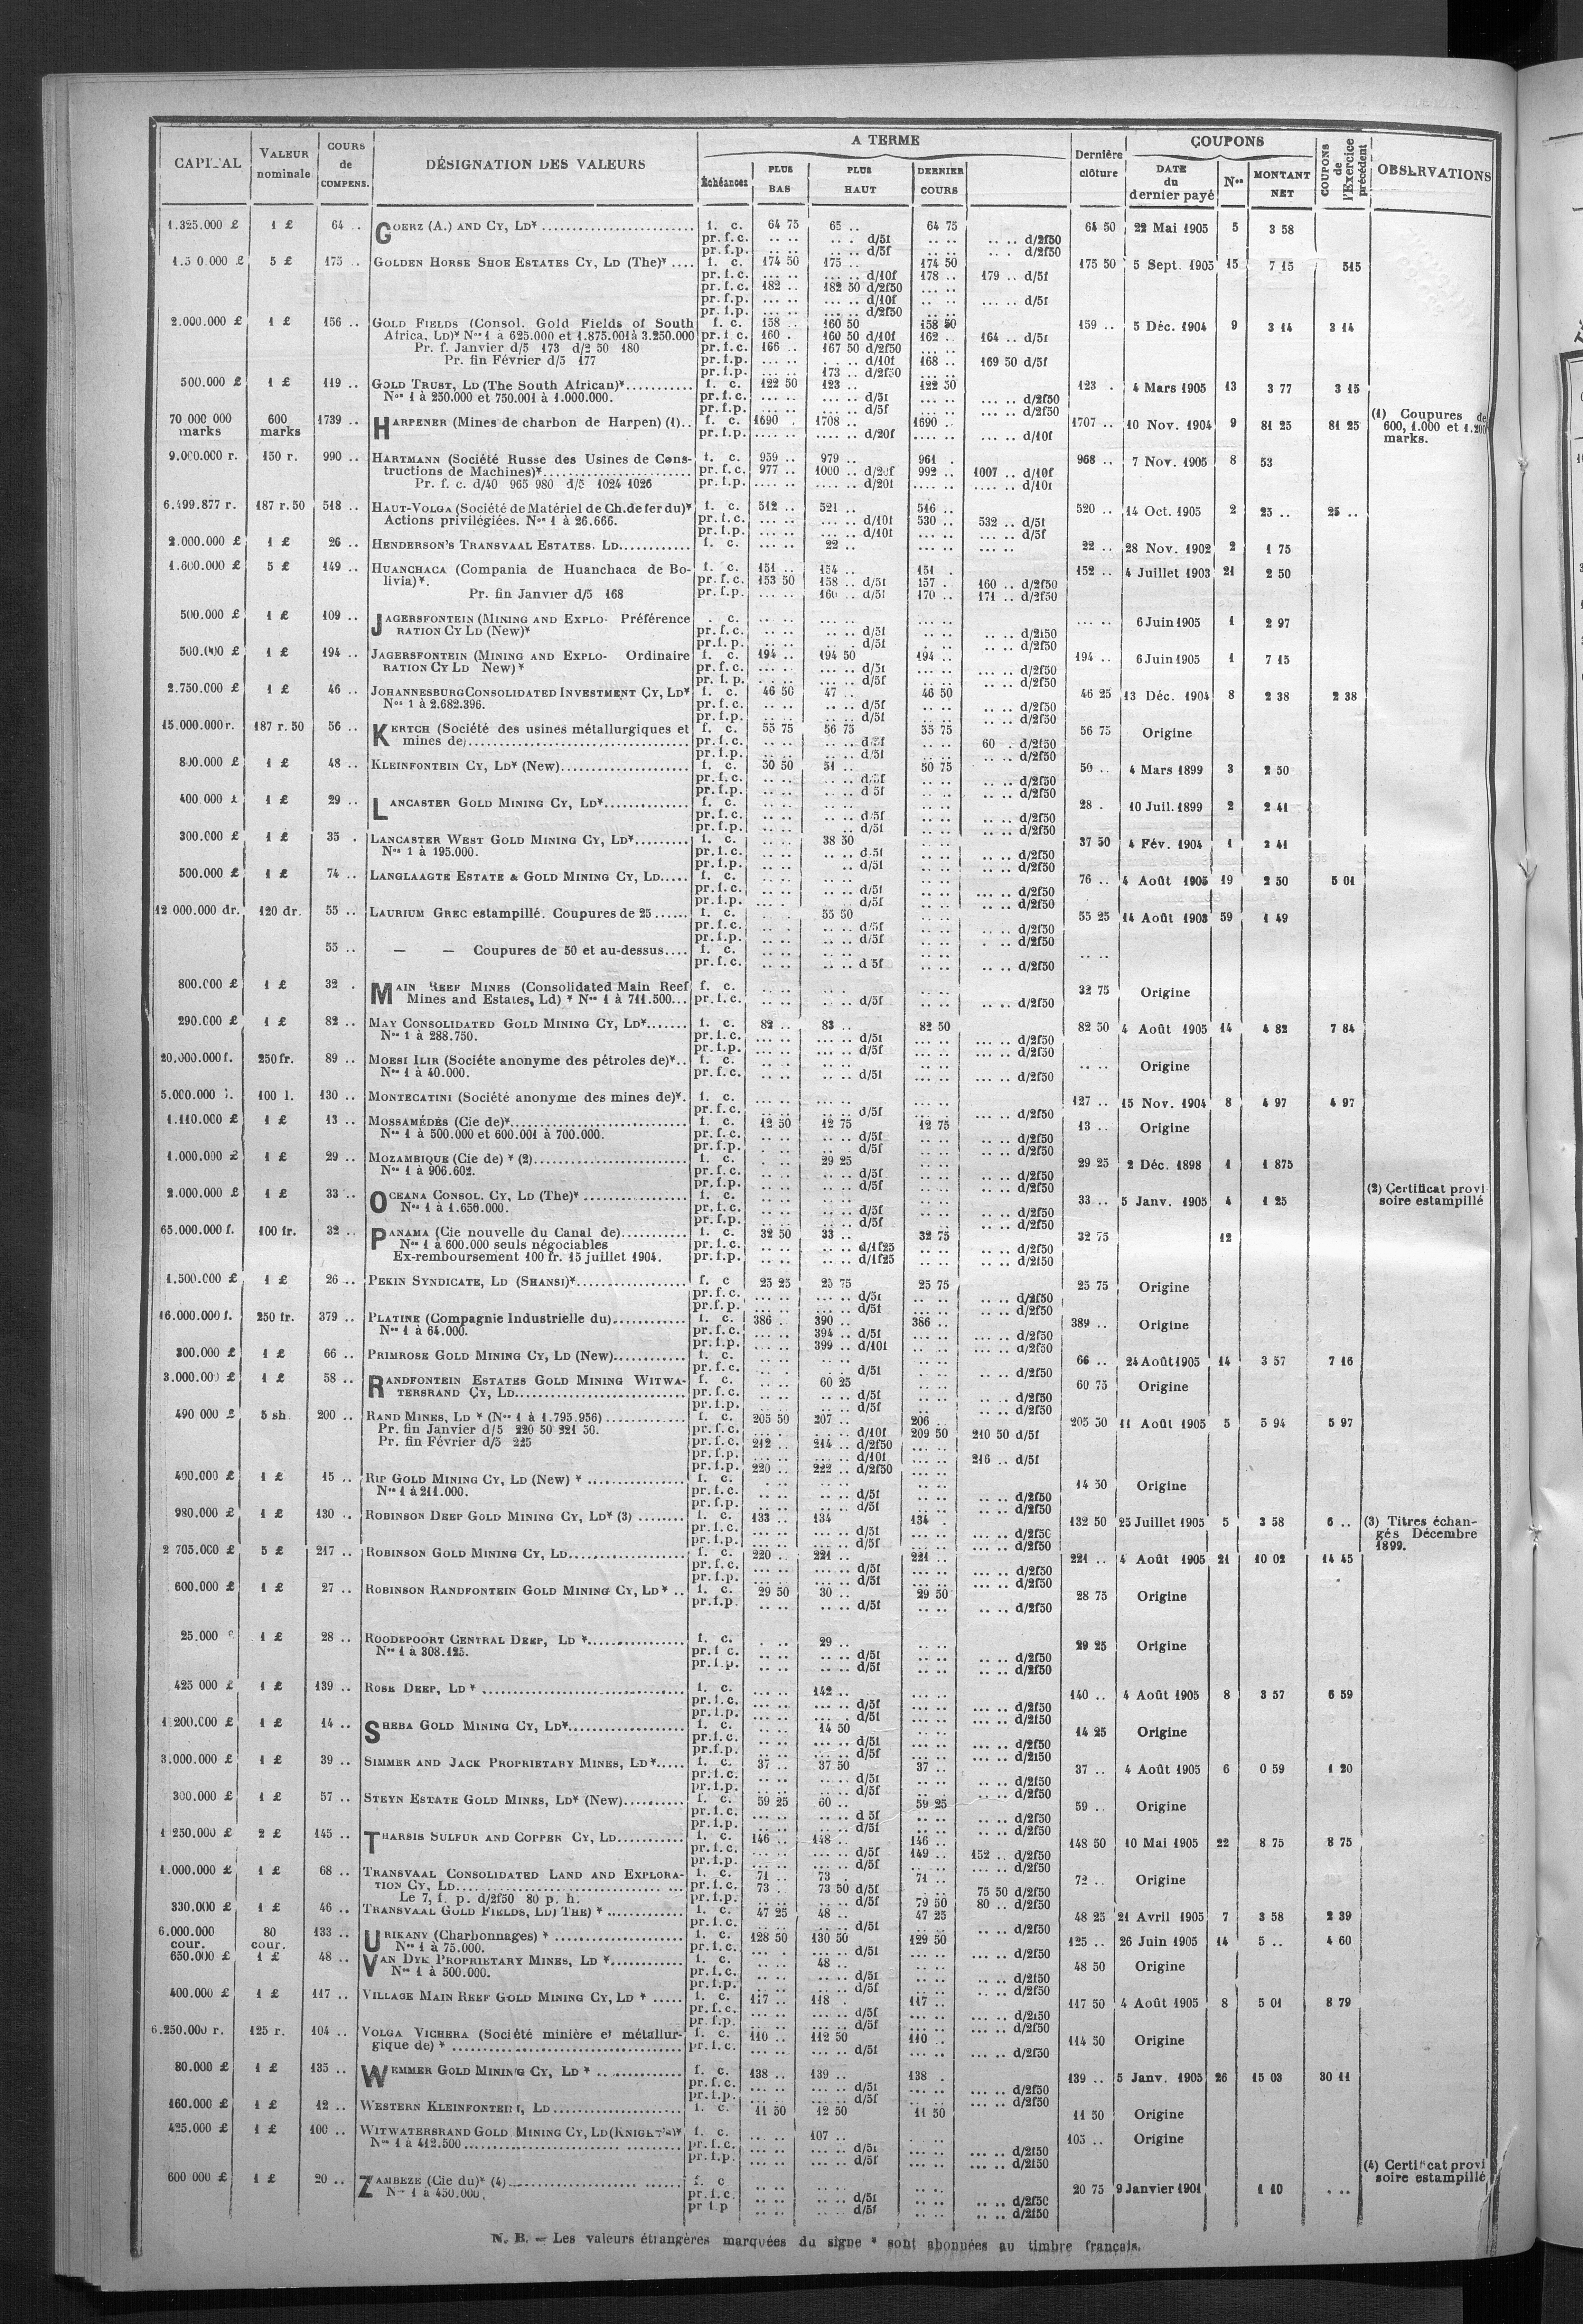 CAPITAL VALEUR nominale COURS de COMPENS. DÉSIGNATION DES VALEURS A TERME Échéances PLUS BAS PLUS HAUT DERNIER COURS Dernière clôture COUPONS DATE du dernier payé Nos MONTANT NET COUPONS de l'Exercice précédent OBSERVATIONS
1.325.000 £ 1 £ 64 .. GOERZ (A.) AND CY, LD* f. c. 64 75 65 .. 64 75 64 50 22 Mai 1905 5 3 58
pr. f. c. d/5f d/2f50
pr. f. p. d/5f d/2f50
5 £ 175 .. GOLDEN HORSE SHOE ESTATES CY, LD (The)* f. c. 174 50 175 .. 174 50 175 50 5 Sept. 1905 15 7 15 515
pr. f. c. d/10f 178 .. 179 .. d/5f
pr. f. c. 182 .. 182 50 d/2f50
pr. f. p. d/10f d/5f
pr. f. p. d/2f50
2.000.000 £ 1 £ 156 .. GOLD FIELDS (Consol. Gold Fields of South f. c. 158 .. 160 50 158 50 159 .. 5 Déc. 1904 9 3 14 3 14
Africa, LD)* Nos 1 à 625.000 et 1.875.001 à 3.250.000 pr. f. c. 160 . 160 50 d/10f 162 .. 164 .. d/5f
Pr. f. Janvier d/5 173 d/2 50 180 pr. f. c. 166 .. 167 50 d/2f50
Pr. fin Février d/5 177 pr. f. p. d/10f 168 .. 169 50 d/5f
pr. f. p. 173 .. d/2f50
500.000 £ 1 £ 119 .. GOLD TRUST, LD (The South African)* f. c. 122 50 123 .. 122 50 123 . 4 Mars 1905 13 3 77 3 15
Nos 1 à 250.000 et 750.001 à 1.000.000. pr. f. c. d/5f d/2f50
pr. f. p. d/5f d/2f50
70 000 000 marks 600 marks 1739 .. HARPENER (Mines de charbon de Harpen) (1).. f. c. 1690 . 1708 .. 1690 .. 1707 .. 10 Nov. 1904 9 81 25 81 25 (1) Coupures de 600, 1.000 et 1.200 marks.
pr. f. p. d/20f d/10f
9.000.000 r. 150 r. 990 .. HARTMANN (Société Russe des Usines de Cons- f. c. 959 .. 979 .. 961 . 968 .. 7 Nov. 1905 8 53
tructions de Machines)* pr. f. c. 977 .. 1000 .. d/20f 992 .. 1007 .. d/10f
Pr. f. c. d/40 965 980 d/5 1024 1026 pr. f. p. d/20f d/10f
6.499.877 r. 187 r. 50 518 .. HAUT-VOLGA (Société de Matériel de Ch. de fer du)* f. c. 512 .. 521 .. 516 .. 520 .. 14 Oct. 1905 2 25 .. 25 ..
Actions privilégiées. Nos 1 à 26.666. pr. f. c. d/10f 530 .. 532 .. d/5f
pr. f. p. d/10f d/5f
2.000.000 £ 1 £ 26 .. HENDERSON'S TRANSVAAL ESTATES. LD f. c. 22 .. 22 .. 28 Nov. 1902 2 1 75
1.600.000 £ 5 £ 149 .. HUANCHACA (Compania de Huanchaca de Bo- f. c. 151 .. 154 .. 151 . 152 .. 4 Juillet 1903 21 2 50
livia)*. pr. f. c. 153 50 158 .. d/5f 157 . 160 .. d/2f50
Pr. fin Janvier d/5 168 pr. f. p. 160 .. d/5f 170 .. 171 .. d/2f50
500.000 £ 1 £ 109 .. JAGERSFONTEIN (MINING AND EXPLO- Préférence . c. 6 Juin 1905 1 2 97
RATION CY LD (New)* pr. f. c. d/5f d/2f50
pr. f. p. d/5f d/2f50
500.000 £ 1 £ 194 .. JAGERSFONTEIN (MINING AND EXPLO- Ordinaire f. c. 194 .. 194 50 194 .. 194 .. 6 Juin 1905 1 7 15
RATION CY LD New)* pr. f. c. d/5f d/2f50
pr. f. p. d/5f d/2f50
2.750.000 £ 1 £ 46 .. JOHANNESBURG CONSOLIDATED INVESTMENT CY, LD* f. c. 46 50 47 .. 46 50 46 25 13 Déc. 1904 8 2 38 2 38
Nos 1 à 2.682.396. pr. f. c. d/5f d/2f50
pr. f. p. d/5f d/2f50
15.000.000 r. 187 r. 50 56 .. KERTCH (Société des usines métallurgiques et f. c. 55 75 56 75 55 75 56 75 Origine
mines de) pr. f. c. d/5f 60 . d/2f50
pr. f. p. d/5f d/2f50
800.000 £ 1 £ 48 .. KLEINFONTEIN CY, LD* (New) f. c. 50 50 51 .. 50 75 50 .. 4 Mars 1899 3 2 50
pr. f. c. d/5f d/2f50
pr. f. p. d 5f d/2f50
400 000 £ 1 £ 29 .. LANCASTER GOLD MINING CY, LD* f. c. 28 . 10 Juil. 1899 2 2 41
pr. f. c. d/5f d/2f50
pr. f. p. d/5f d/2f50
300.000 £ 1 £ 35 . LANCASTER WEST GOLD MINING CY, LD* f. c. 38 50 37 50 4 Fév. 1904 1 2 41
Nos 1 à 195.000. pr. f. c. d/5f d/2f50
pr. f. p. d/5f d/2f50
500.000 £ 1 £ 74 .. LANGLAAGTE ESTATE & GOLD MINING CY, LD f. c. 76 .. 4 Août 1905 19 2 50 5 01
pr. f. c. d/5f d/2f50
pr. f. p. d/5f d/2f50
12 000.000 dr. 120 dr. 55 .. LAURIUM GREC estampillé. Coupures de 25 f. c. 55 50 55 25 14 Août 1903 59 1 49
pr. f. c. d/5f d/2f50
pr. f. p. d/5f d/2f50
55 .. — — Coupures de 50 et au-dessus f. c.
pr. f. c. d 5f d/2f50
800.000 £ 1 £ 32 . MAIN REEF MINES (Consolidated Main Reef f. c. 32 75 Origine
Mines and Estates, Ld) * Nos 1 à 711.500... pr. f. c. d/5f d/2f50
290.000 £ 1 £ 82 .. MAY CONSOLIDATED GOLD MINING CY, LD* f. c. 82 .. 83 .. 82 50 82 50 4 Août 1905 14 4 82 7 84
Nos 1 à 288.750. pr. f. c. d/5f d/2f50
pr. f. p. d/5f d/2f50
20.000.000 f. 250 fr. 89 .. MOESI ILIR (Société anonyme des pétroles de)*.. f. c. Origine
Nos 1 à 40.000. pr. f. c. d/5f d/2f50
5.000.000 l. 100 l. 130 .. MONTECATINI (Société anonyme des mines de)*. f. c. 127 .. 15 Nov. 1904 8 4 97 4 97
pr. f. c. d/5f d/2f50
1.110.000 £ 1 £ 13 .. MOSSAMÉDÈS (Cie de)* f. c. 12 50 12 75 12 75 13 .. Origine
Nos 1 à 500.000 et 600.001 à 700.000. pr. f. c. d/5f d/2f50
pr. f. p. d/5f d/2f50
1.000.000 £ 1 £ 29 .. MOZAMBIQUE (Cie de) * (2) f. c. 29 25 29 25 2 Déc. 1898 1 1 875
Nos 1 à 906.602. pr. f. c. d/5f d/2f50
pr. f. p. d/5f d/2f50
2.000.000 £ 1 £ 33 .. OCEANA CONSOL. CY, LD (The)* f. c. 33 .. 5 Janv. 1905 4 1 25 (2) Certificat provi soire estampillé
Nos 1 à 1.656.000. pr. f. c. d/5f d/2f50
pr. f. p. d/5f d/2f50
65.000.000 f. 100 fr. 32 .. PANAMA (Cie nouvelle du Canal de) f. c. 32 50 33 .. 32 75 32 75 12
Nos 1 à 600.000 seuls négociables pr. f. c. d/1f25 d/2f50
Ex-remboursement 100 fr. 15 juillet 1904. pr. f. p. d/1f25 d/2f50
1.500.000 £ 1 £ 26 .. PEKIN SYNDICATE, LD (SHANSI)* f. c 25 25 25 75 25 75 25 75 Origine
pr. f. c. d/5f d/2f50
pr. f. p. d/5f d/2f50
16.000.000 f. 250 fr. 379 .. PLATINE (Compagnie Industrielle du) f. c. 386 . 390 .. 386 .. 389 .. Origine
Nos 1 à 64.000. pr. f. c. 394 .. d/5f d/2f50
pr. f. p. 399 .. d/10f d/2f50
300.000 £ 1 £ 66 .. PRIMROSE GOLD MINING CY, LD (New) f. c. 66 .. 24 Août 1905 14 3 57 7 16
pr. f. c. d/5f d/2f50
3.000.000 £ 1 £ 58 .. RANDFONTEIN ESTATES GOLD MINING WITWA- f. c. 60 25 60 75 Origine
TERSRAND CY, LD pr. f. c. d/5f d/2f50
pr. f. p. d/5f d/2f50
490 000 £ 5 sh. 200 .. RAND MINES, LD * (Nos 1 à 1.795.956) f. c. 205 50 207 .. 206 .. 205 50 11 Août 1905 5 5 94 5 97
Pr. fin Janvier d/5 220 50 221 50. pr. f. c. d/10f 209 50 210 50 d/5f
Pr. fin Février d/5 225 pr. f. c. 212 .. 214 .. d/2f50
pr. f. p. d/10f 216 .. d/5f
pr. f. p. 220 .. 222 .. d/2f50
400.000 £ 1 £ 15 .. RIP GOLD MINING CY, LD (New) * f. c. 14 50 Origine
Nos 1 à 211.000. pr. f. c. d/5f d/2f50
pr. f. p. d/5f d/2f50
980.000 £ 1 £ 130 .. ROBINSON DEEP GOLD MINING CY, LD* (3) f. c. 133 .. 134 134 .. 132 50 25 Juillet 1905 5 3 58 6 .. (3) Titres échan- gés Décembre 1899.
pr. f. c. d/5f d/2f50
pr. f. p. d/5f d/2f50
2 705.000 £ 5 £ 217 .. ROBINSON GOLD MINING CY, LD f. c. 220 .. 221 .. 221 .. 221 .. 4 Août 1905 21 10 02 14 45
pr. f. c. d/5f d/2f50
pr. f. p. d/5f d/2f50
600.000 £ 1 £ 27 .. ROBINSON RANDFONTEIN GOLD MINING CY, LD* .. f. c. 29 50 30 .. 29 50 28 75 Origine
pr. f. p. d/5f d/2f50
25.000 1 £ 28 .. ROODEPOORT CENTRAL DEEP, LD * f. c. 29 .. 29 25 Origine
Nos 1 à 308.125. pr. f c. d/5f d/2f50
pr. f. p. d/5f d/2f50
425 000 £ 1 £ 139 .. ROSE DEEP, LD * f. c. 142 .. 140 .. 4 Août 1905 8 3 57 6 59
pr. f. c. d/5f d/2f50
pr. f. p. d/5f d/2f50
1 200.000 £ 1 £ 14 .. SHEBA GOLD MINING CY, LD* f. c. 14 50 14 25 Origine
pr. f. c. d/5f d/2f50
pr. f. p. d/5f d/2f50
3.000.000 £ 1 £ 39 .. SIMMER AND JACK PROPRIETARY MINES, LD* f. c. 37 .. 37 50 37 .. 37 .. 4 Août 1905 6 0 59 1 20
pr. f. c. d/5f d/2f50
pr. f. p. d/5f d/2f50
300.000 £ 1 £ 57 .. STEYN ESTATE GOLD MINES, LD* (New) f. c. 59 25 60 .. 59 25 59 .. Origine
pr. f. c. d 5f d/2f50
pr. f. p. d/5f d/2f50
1 250.000 £ 2 £ 145 .. THARSIS SULFUR AND COPPER CY, LD f. c. 146 .. 148 .. 146 .. 148 50 10 Mai 1905 22 8 75 8 75
pr. f. c. d/5f 149 .. 152 .. d/2f50
pr. f. p. d/5f d/2f50
1.000.000 £ 1 £ 68 .. TRANSVAAL CONSOLIDATED LAND AND EXPLORA- f. c. 71 .. 73 . 71 .. 72 .. Origine
TION CY, LD pr. f. c. 73 . 73 50 d/5f 75 50 d/2f50
Le 7, f. p. d/2f50 80 p. h. pr. f. p. d/5f 79 50 80 .. d/2f50
330.000 £ 1 £ 46 .. TRANSVAAL GOLD FIELDS, LD) THE) * f. c. 47 25 48 .. 47 25 48 25 21 Avril 1905 7 3 58 2 39
pr. f. c. d/5f d/2f50
6.000.000 cour. 80 cour. 133 .. URIKANY (Charbonnages) * f. c. 128 50 130 50 129 50 125 .. 26 Juin 1905 14 5 .. 4 60
Nos 1 à 75.000. pr. f. c. d/5f d/2f50
650.000 £ 1 £ 48 .. VAN DYK PROPRIETARY MINES, LD * f. c. 48 .. 48 50 Origine
Nos 1 à 500.000. pr. f. c. d/5f d/2f50
pr. f. p. d/5f d/2f50
400.000 £ 1 £ 117 .. VILLAGE MAIN REEF GOLD MINING CY, LD * f. c. 117 .. 118 . 117 .. 117 50 4 Août 1905 8 5 01 8 79
pr. f. c. d/5f d/2f50
pr. f. p. d/5f d/2f50
6.250.000 r. 125 r. 104 .. VOLGA VICHERA (Société minière et métallur- f. c. 110 .. 112 50 110 .. 114 50 Origine
gique de) * pr. f. c. d/5f d/2f50
80.000 £ 1 £ 135 .. WEMMER GOLD MINING CY, LD * f. c. 138 .. 139 .. 138 . 139 .. 5 Janv. 1905 26 15 03 30 11
pr. f. c. d/5f d/2f50
pr. f. p. d/5f d/2f50
160.000 £ 1 £ 12 .. WESTERN KLEINFONTEIN, LD f. c. 11 50 12 50 11 50 11 50 Origine
425.000 £ 1 £ 100 .. WITWATERSRAND GOLD MINING CY, LD (KNIGHT'S)* f. c. 107 .. 105 .. Origine
Nos 1 à 412.500 pr. f. c. d/5f d/2f50
pr. f. p. d/5f d/2f50
600 000 £ 1 £ 20 .. ZAMBEZE (Cie du)* (4) f. c 20 75 9 Janvier 1901 1 10 (4) Certificat provi soire estampillé
Nos 1 à 450.000. pr. f. c. d/5f d/2f50
pr f. p d/5f d/2f50
N. B. — Les valeurs étrangères marquées du signe * sont abonnées au timbre français.